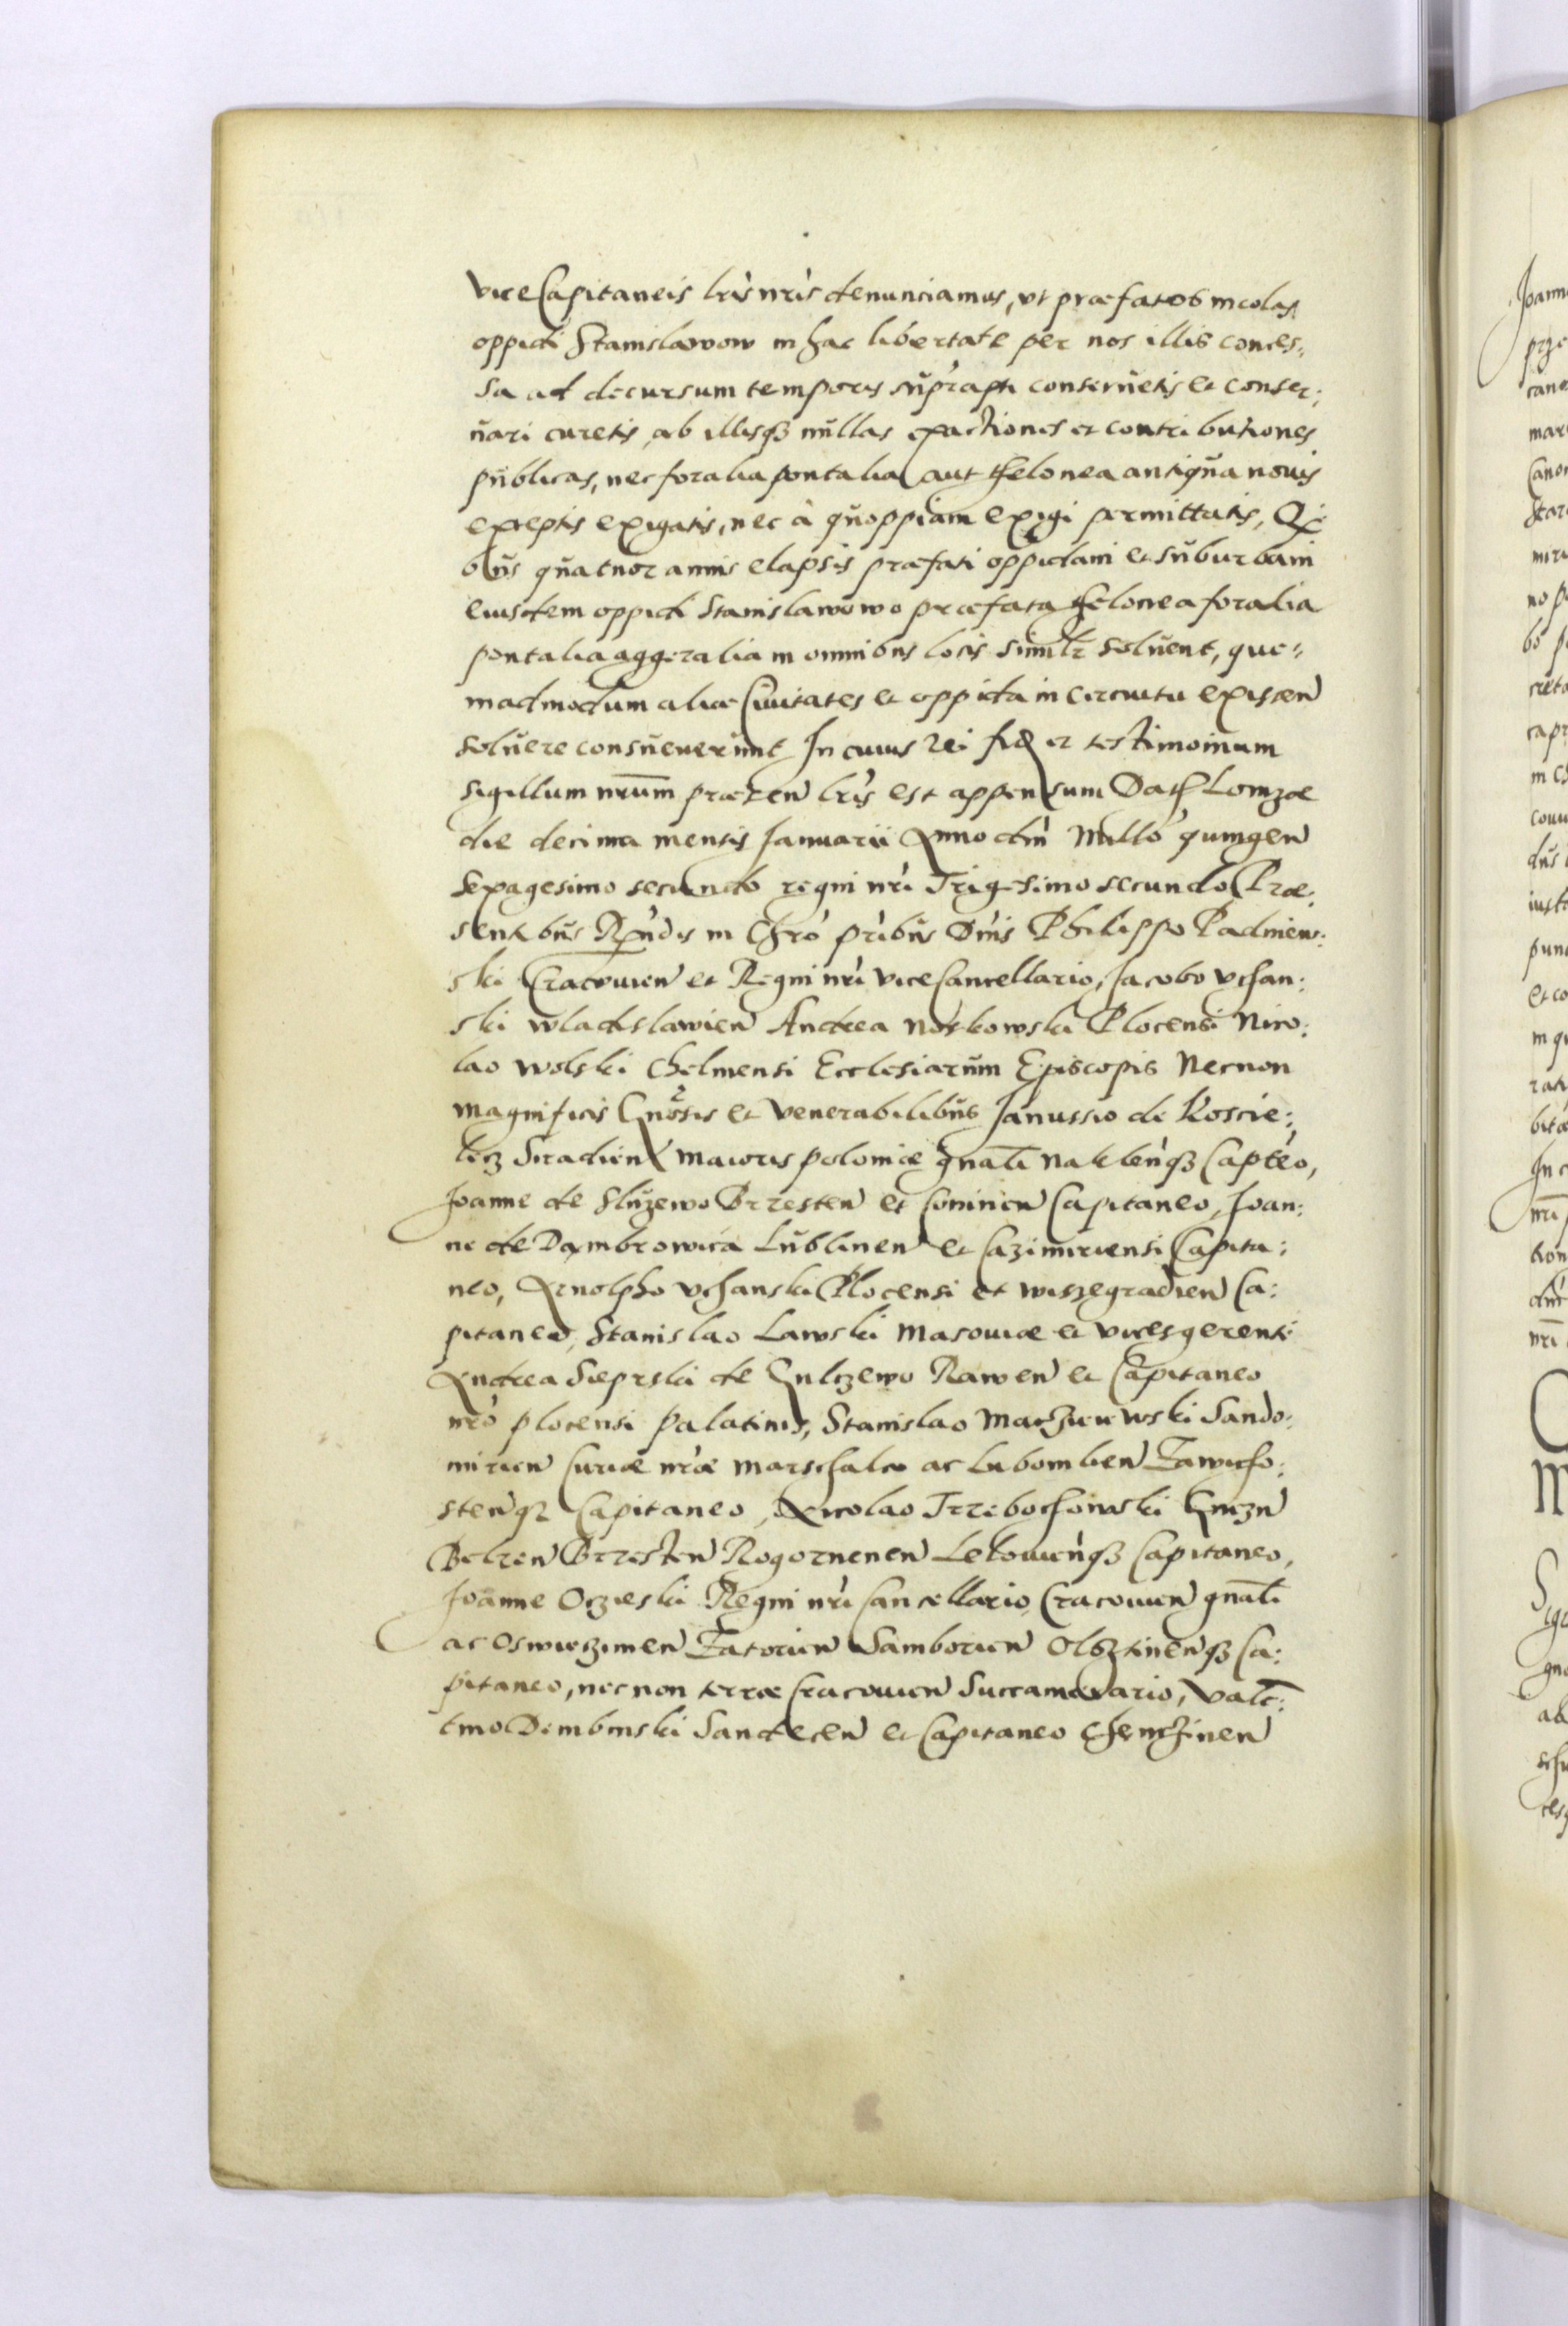 viceCapitaneis lrìs nrìs denunciamus, vt præfatos incolas
oppidi Stanislawow in hac libertate per nos illis conces„
sa ad decursum temporis supràpti conseruetis et conser:
uari curetis, ab illisqз nullas exactiones et contributiones
publicas, nec foralia pontalia aut thelonea antiqua nouis
exceptis exigatis, nec à quoppiam exigi permittatis, Qi
bus quatuor annis elapsis præfati oppidani et suburbani
eiusdem oppidi Stanislawowo præfata thelonea foralia
pontalia aggeralia in omnibus locis similr soluent, que„
madmodum aliæ Ciuitates et oppida in circuitu existen
soluere consueuerunt In cuius rei fid et testimonium
sigillum nrum præsen lris est appensum Dat Lomzæ
die decima mensis Januarii Anno dni Millo quingen
sexagesimo secundo regni nri Trigesimo secundo Præ:
sentibus Rndis in Chro pribus Dnis Philippo Padniews:
ski Cracouien et Regni nri viceCancellario, Jacobo vchan:
ski wladislawien Andrea Noskowski Plocensi Nico:
lao Wolski Chelmensi Ecclesiarum Episcopis Necnon
magnificis Gnosis et Venerabilibus Janussio de Koscie:
lecz Siradien maioris poloniæ gnali Naklenqз Capteo,
Joanne de Sluzewo Brzesten et Coninien Capitaneo, Joan:
ne de Dambrowica Lublinen et Cazimiriensi Capita:
neo, Arnolpho vchanski Plocensi et wiszegradien Ca:
pitaneo, Stanislao Lawski Masouiæ et vicesgerenti
Andrea Sieprski de Gulczewo Rawen et Capitaneo
nro plocensi palatinis, Stanislao Maczieiewski Sando:
mirien Curiæ nræ Marschalco ac Lubomlien Zawicho:
stenqз Capitaneo, Nicolao Trzebochowski Gnezn
Belzen Brzesten Rogoznenen Lelouienqз Capitaneo,
Joanne Oczieski Regni nri Cancellario Cracouien gnali
ac Oswieczimen Zatorien Samborien Olsztinenqз Ca:
pitaneo, nec non terræ Cracouien Succamerario, Valē:
tino Dembinski Sandecen et Capitaneo Chenczinen